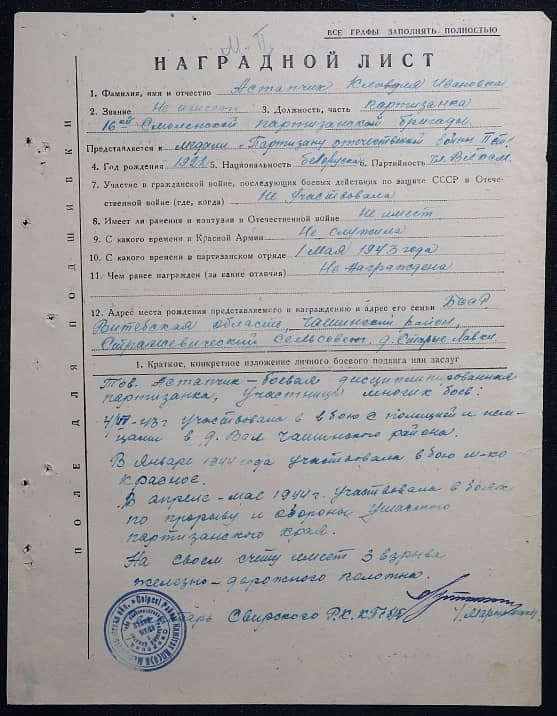 ВСЕ ГРАФЫ ЗАПОЛНЯТЬ ПОЛНОСТЬЮ
М-II
НАГРАДНОЙ ЛИСТ
1. Фамилия, имя и отчество Астапчик Клавдия Ивановна
2. Звание Не имеет 3. Должность, часть партизанка
16ой Смоленской партизанской бригады
Представляется к медали "Партизану отечественной войны"
4. Год рождения 1922 5. Национальность белоруска 6. Партийность чл. ВЛКСМ
7. Участие в гражданской войне, последующих боевых действиях по защите СССР в Отече-
ственной войне (где, когда) Не участвовала
8. Имеет ли ранения и контузии в Отечественной войне Не имеет
9. С какого времени в Красной Армии Не служила
10. С какого времени в партизанском отряде 1 мая 1943 года
11. Чем ранее награжден (за какие отличия) Не награждена
12. Адрес места рождения представляемого к награждению и адрес его семьи БССР
Витебская область, Чашникский район,
сельсовет, д. Старые Лавки
1. Краткое, конкретное изложение личного боевого подвига или заслуг
Тов. Астапчик – боевая дисциплинированная
партизанка, участница многих боев:
4/VI-43 г участвовала в бою с полицией и нем-
цами в д. Вал Чашникского района.
В январе 1944 года участвовала в бою м-ко
Красное.
В апреле-мае 1944 г. участвовала в боях
по прорыву и обороны Ушачского
партизанского края.
На своем счету имеет 3 взрыва
железно-дорожного полотна.
Свирского Р.К. КП(б)Б
ПОЛЕ ДЛЯ ПОДШИВКИ